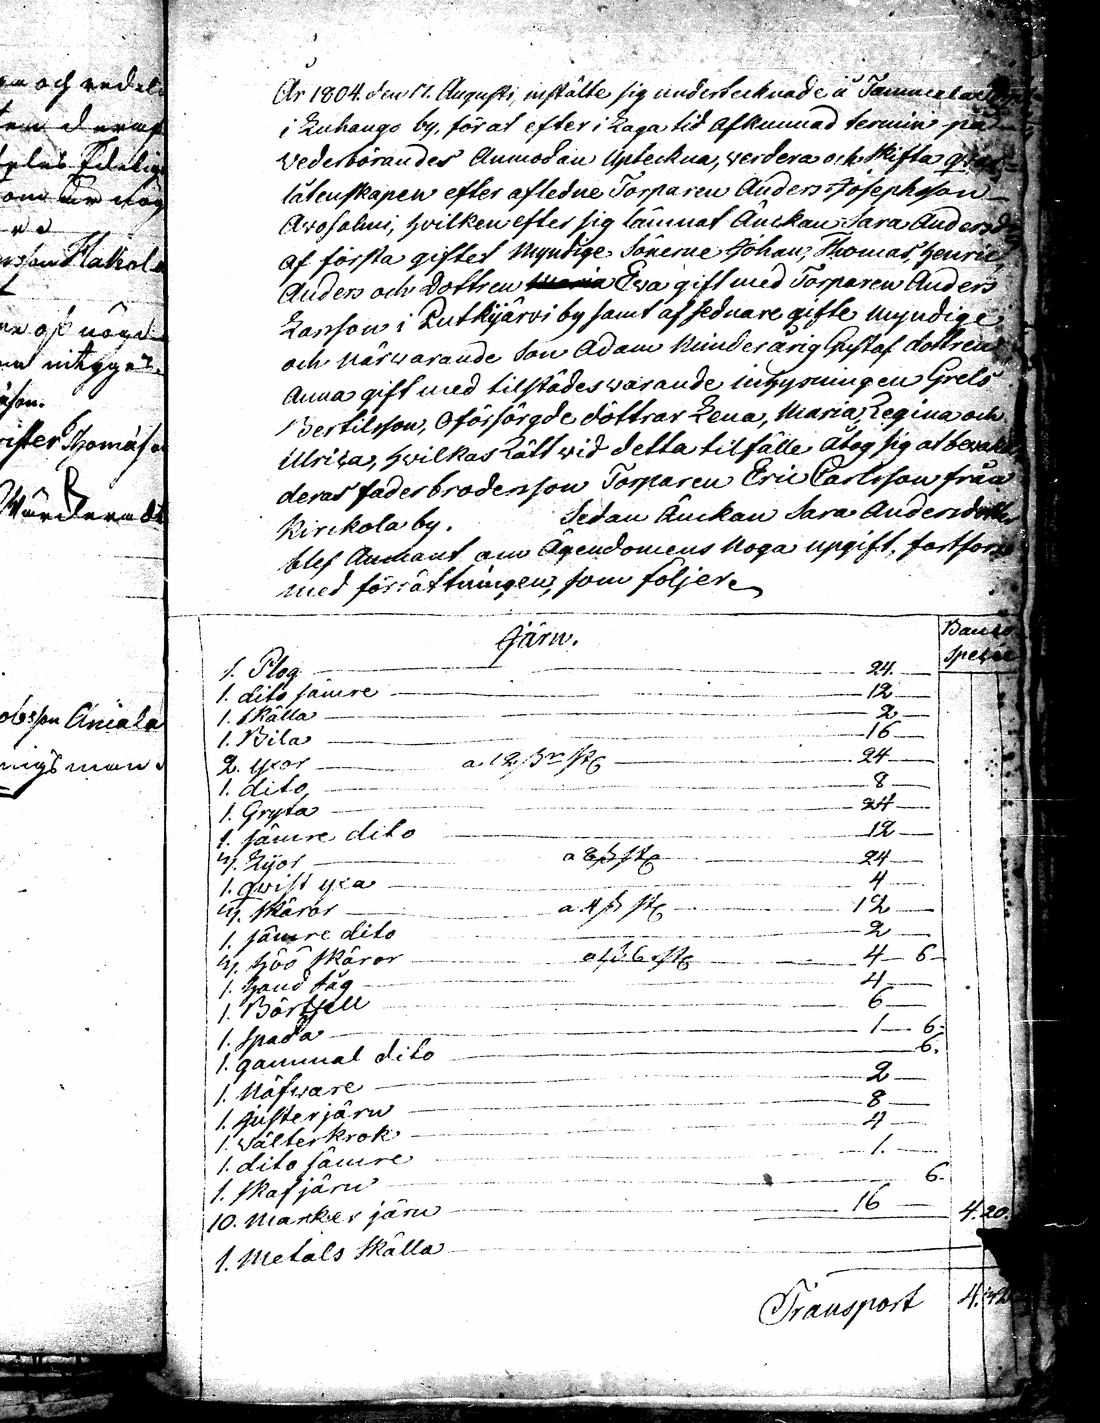 en och redeli
ten deraf
som är nög
Hakola
nöyd
son.
rister Thomas
Värderadt
olsson Aniala
nigsman
År 1804. den 17. Augusti, instälte sig undertecknade i Tammela
i Luhango by, för at efter i Laga tid afkunnad termin på
wederbörandes anmodan upteckna, werdera och skifta qwar=
låtenskapen efter aflidne Torparen Anders Josephsson
Arosalmi, hvilken efter sig lämnat Änckan Sara Andersd
af första giftet Myndige Sönerne Johan, Thomas, Henric
Anders och dottren Ewa gift med Torparen Anders
Larsson i Lutkijärvi by samt af sednare gifte myndige
och närwarande Son Adam Minderårig Gustaf dottren
Anna gift med tilstädeswarande inhysningen Grels
Bertilsson, Oförsörgde döttrar Lena, Maria Regina och
Ulrica, hvilkas Rätt wid detta tilfälle åtog sig at bevaka
deras fadersbrodersson Torparen Eric Carlsson från
Kirckola by. Sedan Änckan Sara Andersdotter
blef Anmant om Ägendomens Noga upgift, fortfors
med förrättningen, som följer
Järn.
Banco
Specie
1. Plog 24.
1. dito sämre 12
1. Skälla 2
1. Bila 16
2. yxor a 12 ßr st 24
1. dito 8
1. Gryta 24
1. sämre dito 12
3. Lijor a 8 ß st 24
1. qwist yxa 4
3. Skäror a 4 ß st 12
1. sämre dito 2
3. höö Skäror a 1 ß 6 r st 4 6
1. hand såg 4
1. Bårtsell 6
1. Spada 1 6.
1. gammal dito 6.
1. Näfware 2
1. Justerjärn 8
1. wälterkrok 4
1. dito sämre 1.
1. skafjärn 6.
10. Marker järn 16 4. 20.
1. Metals Skälla
Transport 4. 32